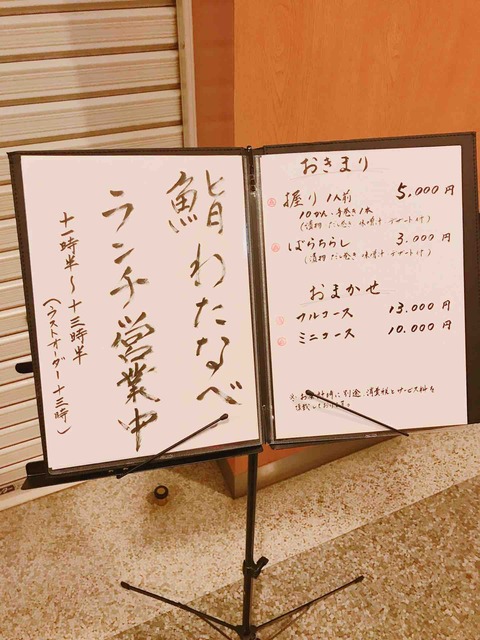 鮨わたなべ
ランチ営業中
十一時半〜十三時半
(ラストオーダー十三時)
おきまり
握り 1人前 5,000円
10かん・手巻き1本
(漬物 だし巻き 味噌汁 デザート付)
ばらちらし 3,000円
(漬物 だし巻き 味噌汁 デザート付)
おまかせ
フルコース 13,000円
ミニコース 10,000円
※お会計時に別途 消費税とサービス料を
頂戴しております。